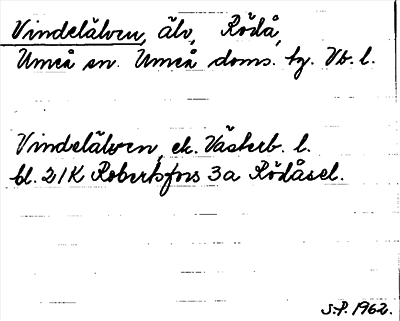 Vindelälven, älv, Rödå,
Umeå sn. Umeå doms. tg. Vb. l.
Vindelälven, ek. Västerb. l.
bl. 21K Robertsfors 3a Rödåsel.
S.P. 1962.